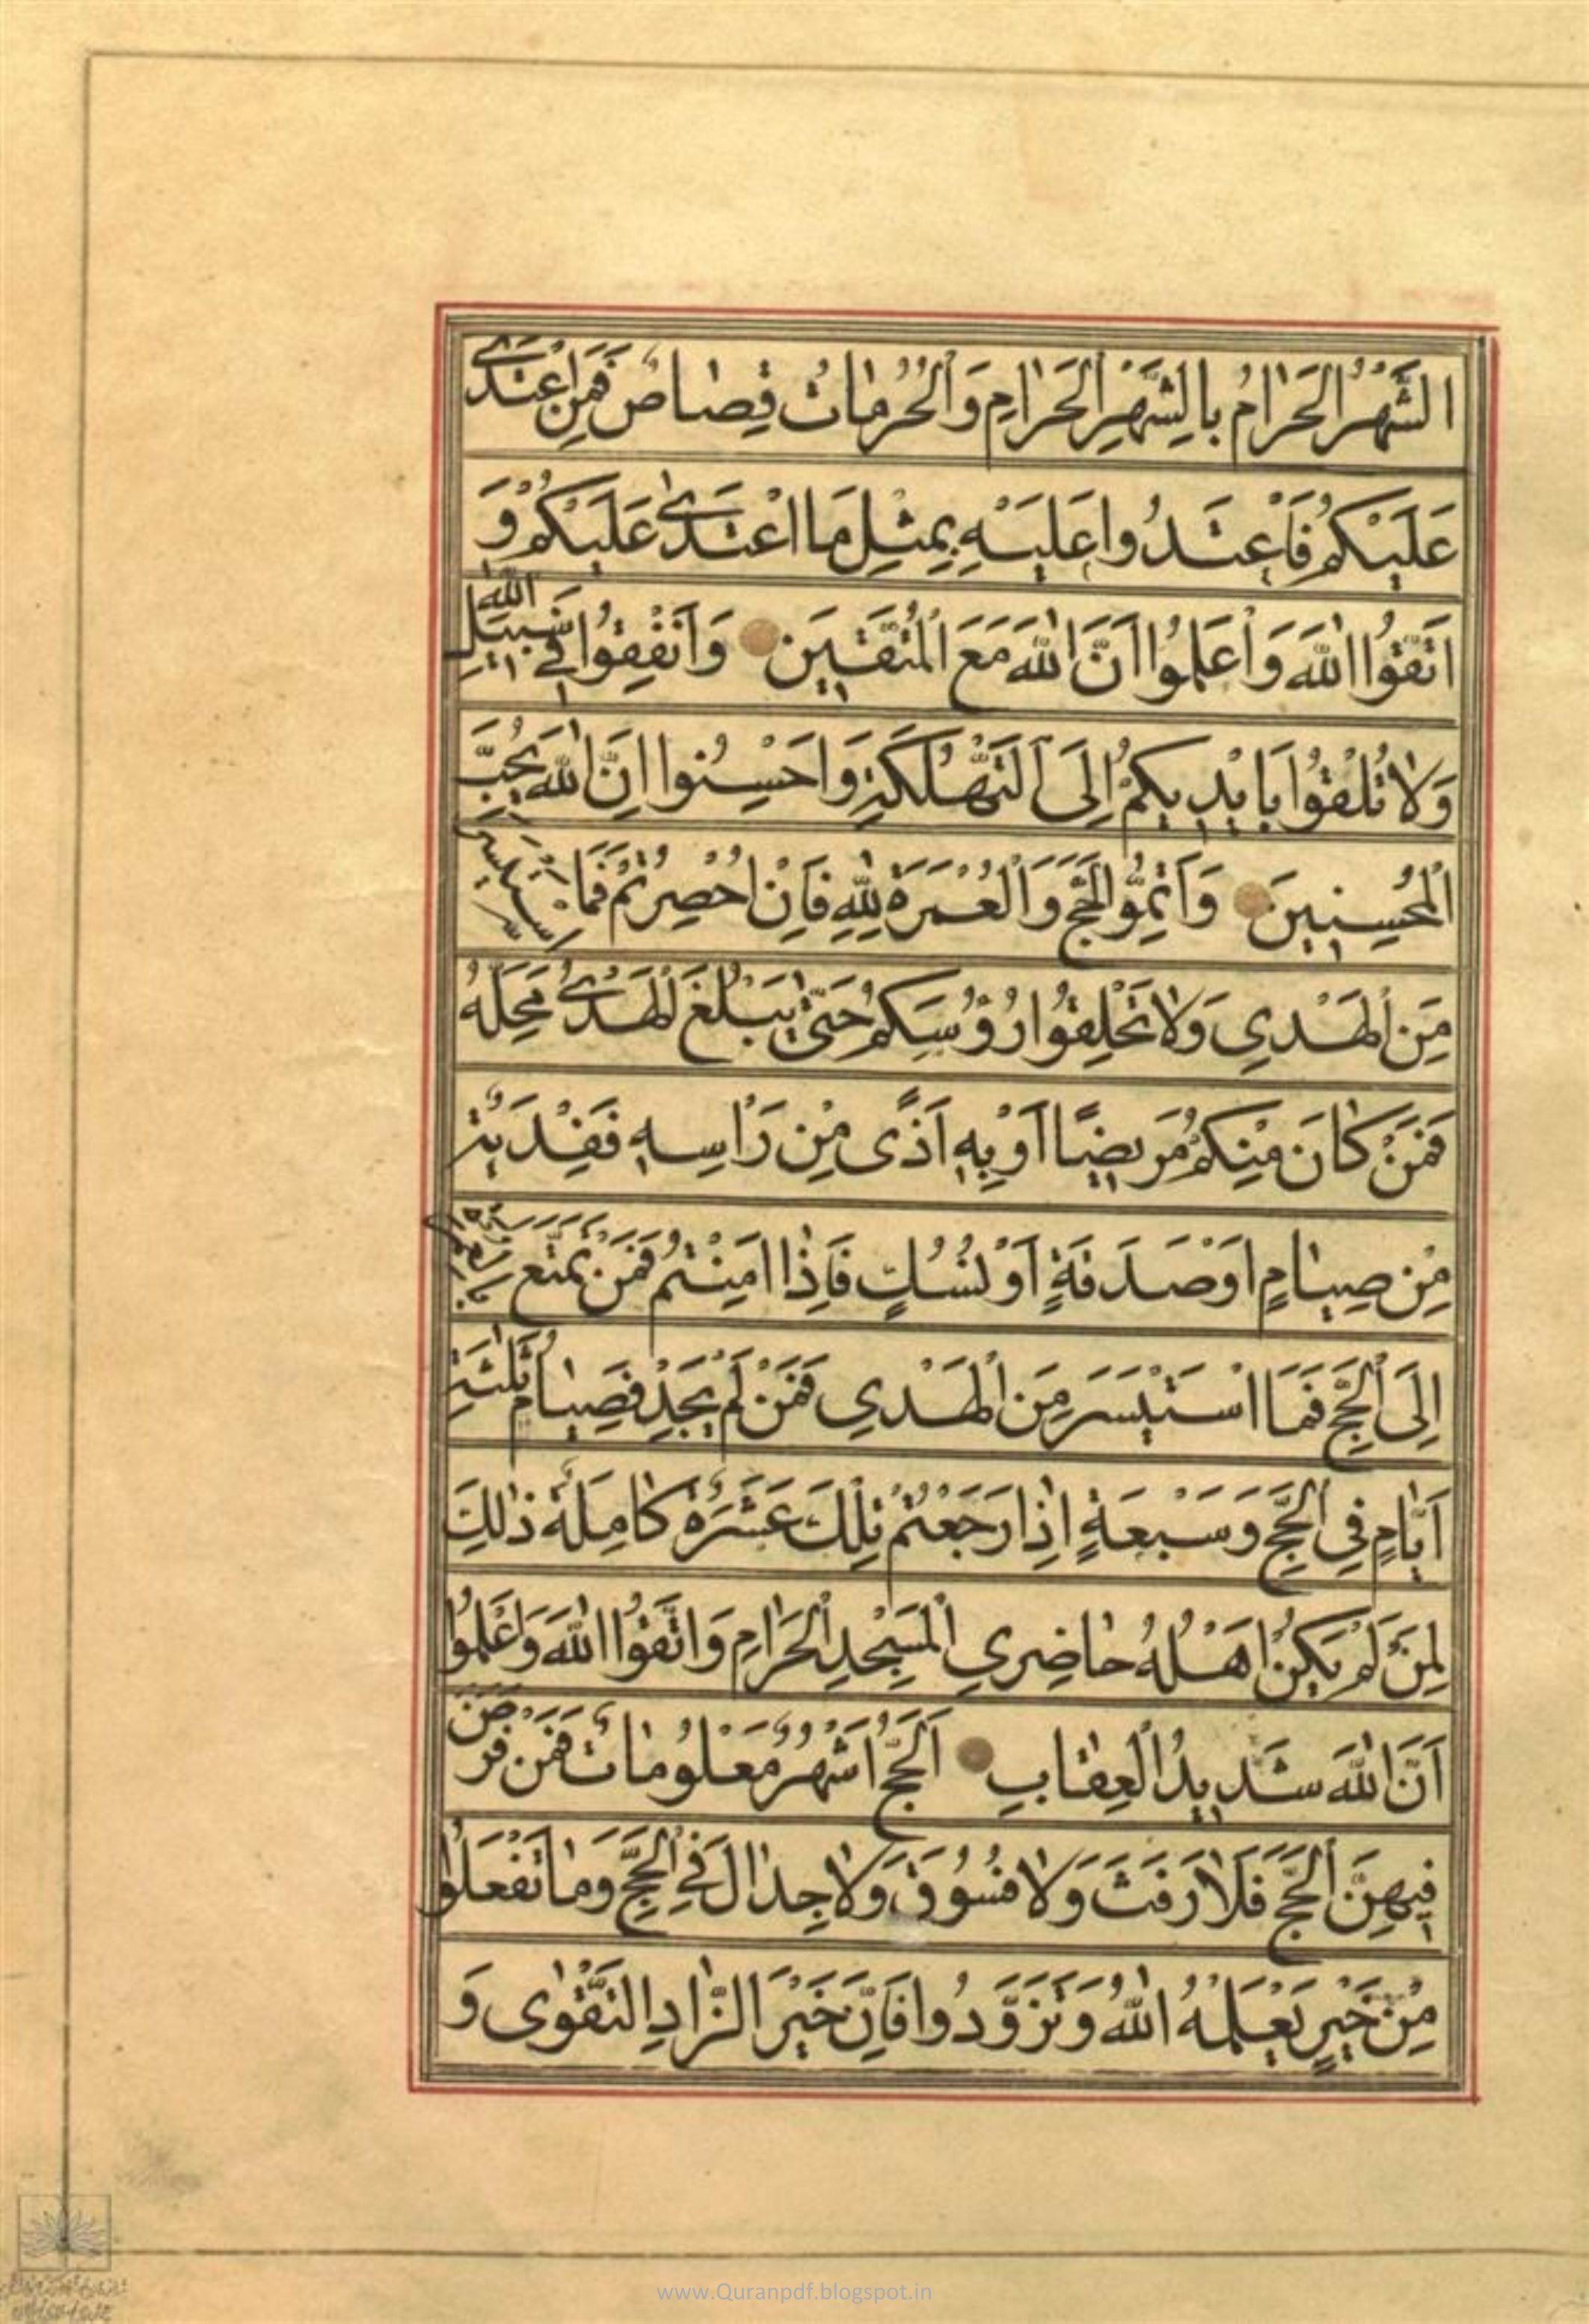 الشَّهْرُ الْحَرَامُ بِالشَّهْرِ الْحَرَامِ وَالْحُرُمَاتُ قِصَاصٌ فَمَنِ اعْتَدَىٰ
عَلَيْكُمْ فَاعْتَدُوا عَلَيْهِ بِمِثْلِ مَا اعْتَدَىٰ عَلَيْكُمْ وَ
اتَّقُوا اللهَ وَاعْلَمُوا اَنَّ اللهَ مَعَ الْمُتَّقِينَ وَاَنْفِقُوا فِي سَبِيلِ اللهِ
وَلَا تُلْقُوا بِاَيْدِيكُمْ اِلَى التَّهْلُكَةِ وَاَحْسِنُوا اِنَّ اللهَ يُحِبُّ
الْمُحْسِنِينَ وَاَتِمُّوا الْحَجَّ وَالْعُمْرَةَ لِلّٰهِ فَاِنْ اُحْصِرْتُمْ فَمَا اسْتَيْسَرَ
مِنَ الْهَدْيِ وَلَا تَحْلِقُوا رُؤُسَكُمْ حَتّىٰ يَبْلُغَ الْهَدْيُ مَحِلَّهُ
فَمَنْ كَانَ مِنْكُمْ مَرِيضًا اَوْ بِهِ اَذًى مِنْ رَاْسِهِ فَفِدْيَةٌ
مِنْ صِيَامٍ اَوْ صَدَقَةٍ اَوْ نُسُكٍ فَاِذَا اَمِنْتُمْ فَمَنْ تَمَتَّعَ بِالْعُمْرَةِ
اِلَى الْحَجِّ فَمَا اسْتَيْسَرَ مِنَ الْهَدْيِ فَمَنْ لَمْ يَجِدْ فَصِيَامُ ثَلٰثَةِ
اَيَّامٍ فِي الْحَجِّ وَسَبْعَةٍ اِذَا رَجَعْتُمْ تِلْكَ عَشَرَةٌ كَامِلَةٌ ذٰلِكَ
لِمَنْ لَمْ يَكُنْ اَهْلُهُ حَاضِرِي الْمَسْجِدِ الْحَرَامِ وَاتَّقُوا اللهَ وَاعْلَمُوا
اَنَّ اللهَ شَدِيدُ الْعِقَابِ اَلْحَجُّ اَشْهُرٌ مَعْلُومَاتٌ فَمَنْ فَرَضَ
فِيهِنَّ الْحَجَّ فَلَا رَفَثَ وَلَا فُسُوقَ وَلَا جِدَالَ فِي الْحَجِّ وَمَا تَفْعَلُوا
مِنْ خَيْرٍ يَعْلَمْهُ اللهُ وَتَزَوَّدُوا فَاِنَّ خَيْرَ الزَّادِ التَّقْوٰى وَ
www.Quranpdf.blogspot.in